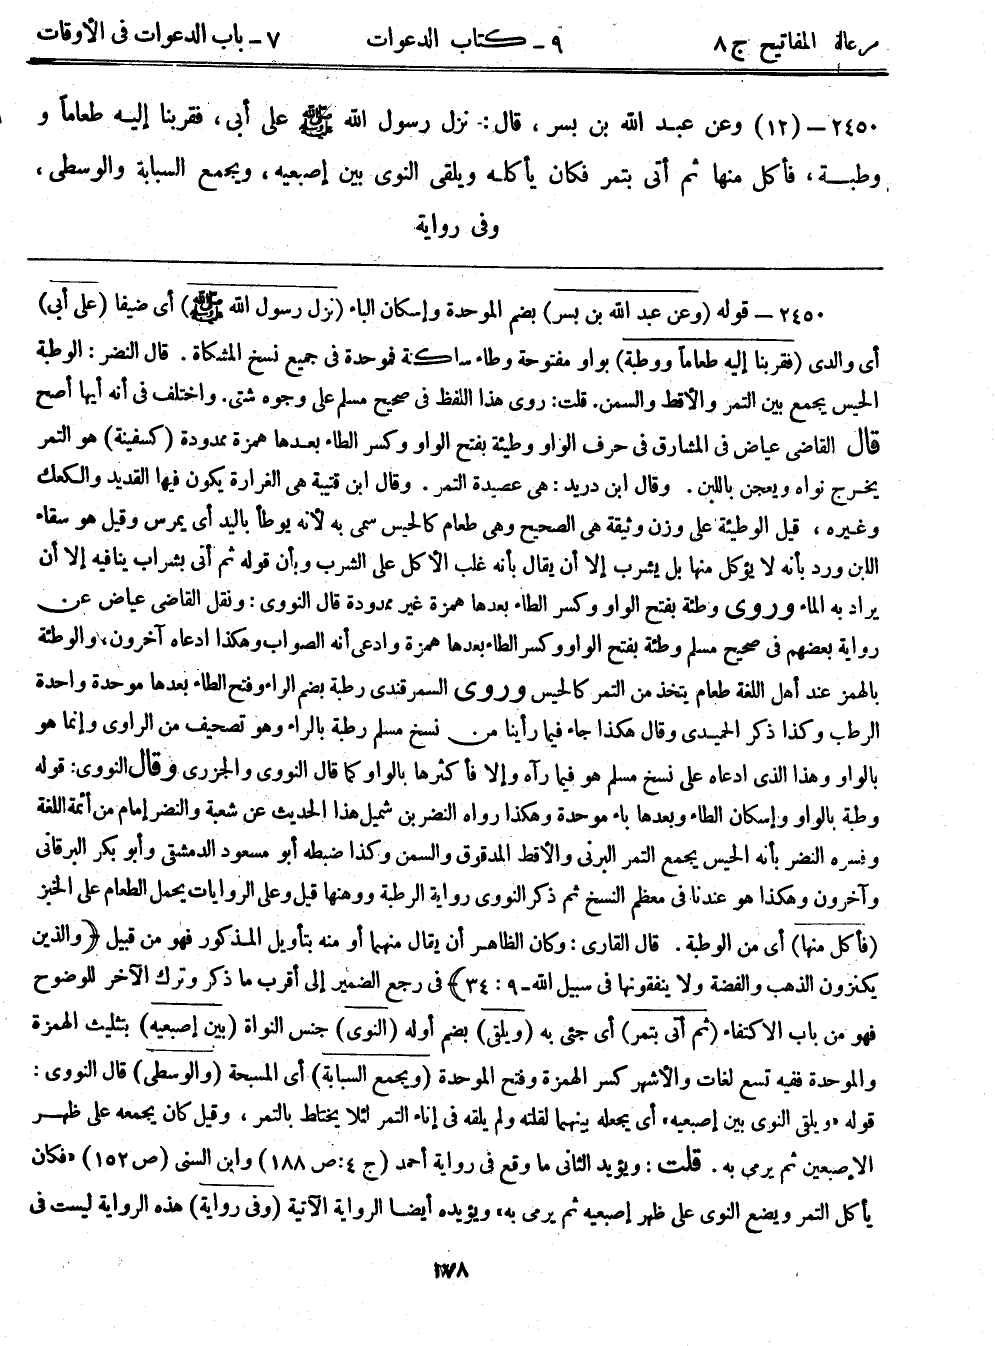 مرعاة المفاتيح ج ٨ ٩ ـ كتاب الدعوات ٧ ـ باب الدعوات فى الأوقات
٢٤٥٠ – (١٢) وعن عبد الله بن بسر ، قال : نزل رسول الله ﷺ على أبى ، فقربنا إليه طعاماً و
وطبة ، فأكل منها ثم أتى بتمر فكان يأكله ويلقى النوى بين إصبعيه ، ويجمع السبابة والوسطى ،
وفى رواية
٢٤٥٠ – قوله (وعن عبد الله بن بسر) بضم الموحدة وإسكان الباء (نزل رسول الله ﷺ) أى ضيفا (على أبى)
أى والدى (فقربنا إليه طعاماً ووطبة) بواو مفتوحة وطاء ساكنة فموحدة فى جميع نسخ المشكاة . قال النضر : الوطبة
الحيس يجمع بين التمر والأقط والسمن. قلت: روى هذا اللفظ فى صحيح مسلم على وجوه شتى. واختلف فى أنه أيها أصح
قال القاضى عياض فى المشارق فى حرف الواو وطيئة بفتح الواو وكسر الطاء بعدها همزة ممدودة (كسفينة) هو التمر
يخرج نواه ويعجن باللبن . وقال ابن دريد : هى عصيدة التمر . وقال ابن قتيبة هى الغرارة يكون فيها القديد والكعك
وغيره ، قيل الوطيئة على وزن وثيقة هى الصحيح وهى طعام كالحيس سمى به لأنه يوطأ باليد أى يمرس وقيل هو سقاء
اللبن ورد بأنه لا يؤكل منها بل يشرب إلا أن يقال بأنه غلب الأكل على الشرب وبأن قوله ثم أتى بشراب ينافيه إلا أن
يراد به الماء وروى وطئة بفتح الواو وكسر الطاء بعدها همزة غير ممدودة قال النووى : ونقل القاضى عياض عن
رواية بعضهم فى صحيح مسلم وطئة بفتح الواو وكسر الطاء بعدها همزة وادعى أنه الصواب وهكذا ادعاه آخرون، والوطئة
بالهمز عند أهل اللغة طعام يتخذ من التمر كالحيس وروى السمرقندى رطبة بضم الراء وفتح الطاء بعدها موحدة واحدة
الرطب وكذا ذكر الحميدى وقال هكذا جاء فيما رأينا من نسخ مسلم رطبة بالراء وهو تصحيف من الراوى وإنما هو
بالواو وهذا الذى ادعاه على نسخ مسلم هو فيما رآه وإلا فأكثرها بالواو كما قال النووى والجزرى وقال النووى: قوله
وطبة بالواو وإسكان الطاء وبعدها باء موحدة وهكذا رواه النضر بن شميل هذا الحديث عن شعبة والنضر إمام من أئمة اللغة
وفسره النضر بأنه الحيس يجمع التمر البرنى والأقط المدقوق والسمن وكذا ضبطه أبو مسعود الدمشقى وأبو بكر البرقانى
وآخرون وهكذا هو عندنا فى معظم النسخ ثم ذكر النووى رواية الرطبة ووهنها قيل وعلى الروايات يحمل الطعام على الخبز
(فأكل منها) أى من الوطبة . قال القارى : وكان الظاهر أن يقال منهما أو منه بتأويل المذكور فهو من قبيل ﴿والذين
يكنزون الذهب والفضة ولا ينفقونها فى سبيل الله ـ ٩ : ٣٤﴾ فى رجع الضمير إلى أقرب ما ذكر وترك الآخر للوضوح
فهو من باب الاكتفاء (ثم أتى بتمر) أى جئى به (ويلقى) بضم أوله (النوى) جنس النواة (بين إصبعيه) بتثليث الهمزة
والموحدة ففيه تسع لغات والأشهر كسر الهمزة وفتح الموحدة (ويجمع السبابة) أى المسبحة (والوسطى) قال النووى :
قوله «ويلقى النوى بين إصبعيه» أى يجعله بينهما لقلته ولم يلقه فى إناء التمر لئلا يختلط بالتمر ، وقيل كان يجمعه على ظهر
الإصبعين ثم يرمى به . قلت : ويؤيد الثانى ما وقع فى رواية أحمد (ج ٤ : ص ١٨٨) وابن السنى (ص ١٥٢) «فكان
يأكل التمر ويضع النوى على ظهر إصبعيه ثم يرمى به» ويؤيده أيضا الرواية الآتية (وفى رواية) هذه الرواية ليست فى